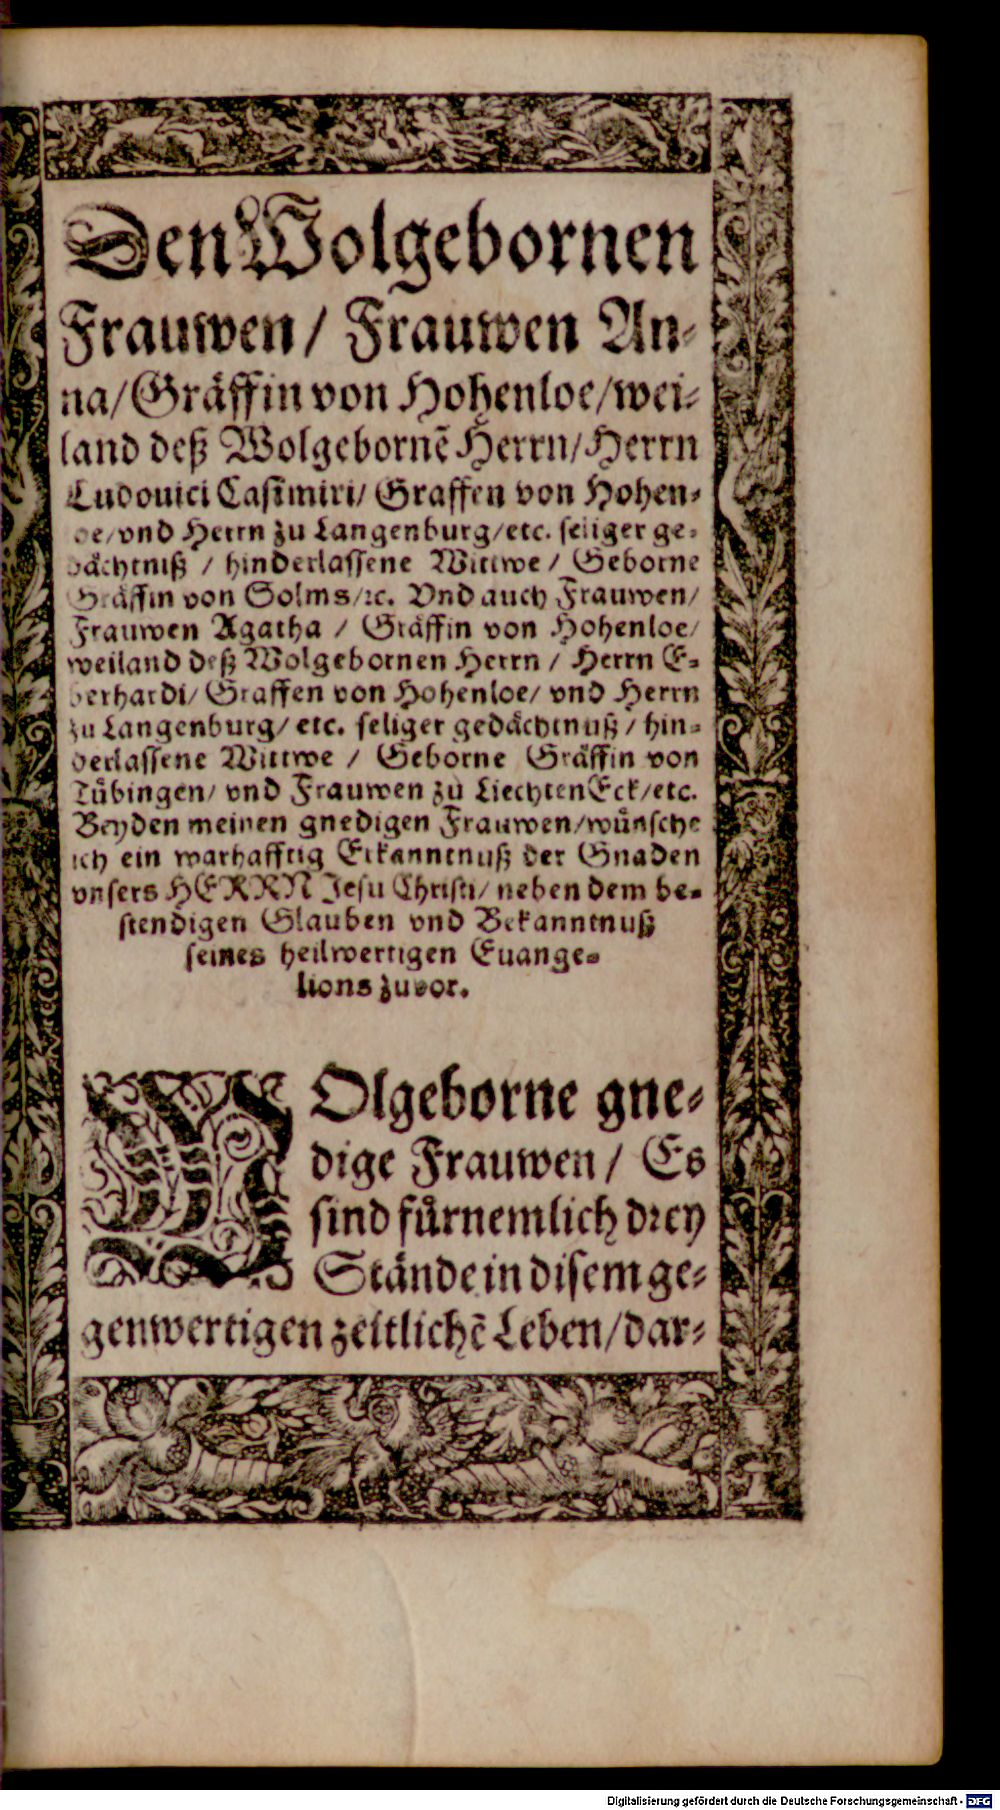 Den Wolgebornen
Frauwen/ Frauwen An-
na/ Gräffin von Hohenloe/ wei-
land deß Wolgebornẽ Herrn/ Herrn
Ludouici Casimiri/ Graffen von Hohen-
loe/ vnd Herrn zu Langenburg/ etc. seliger ge-
dächtniß / hinderlassene Wittwe / Geborne
Gräffin von Solms/ ꝛc. Vnd auch Frauwen/
Frauwen Agatha / Gräffin von Hohenloe/
weiland deß Wolgebornen Herrn / Herrn E-
berhardi/ Graffen von Hohenloe/ vnd Herrn
zu Langenburg/ etc. seliger gedächtnuß / hin-
derlassene Wittwe / Geborne Gräffin von
Tübingen/ vnd Frauwen zu Liechten Eck/ etc.
Beyden meinen gnedigen Frauwen/ wünsche
ich ein warhafftig Erkanntnuß der Gnaden
vnsers HERRN Jesu Christi/ neben dem be-
stendigen Glauben vnd Bekanntnuß
seines heilwertigen Euange-
lions zuvor.
WOlgeborne gne-
dige Frauwen / Es
sind fürnemlich drey
Stände in disem ge-
genwertigen zeitlichẽ Leben/ dar-
Digitalisierung gefördert durch die Deutsche Forschungsgemeinschaft - DFG